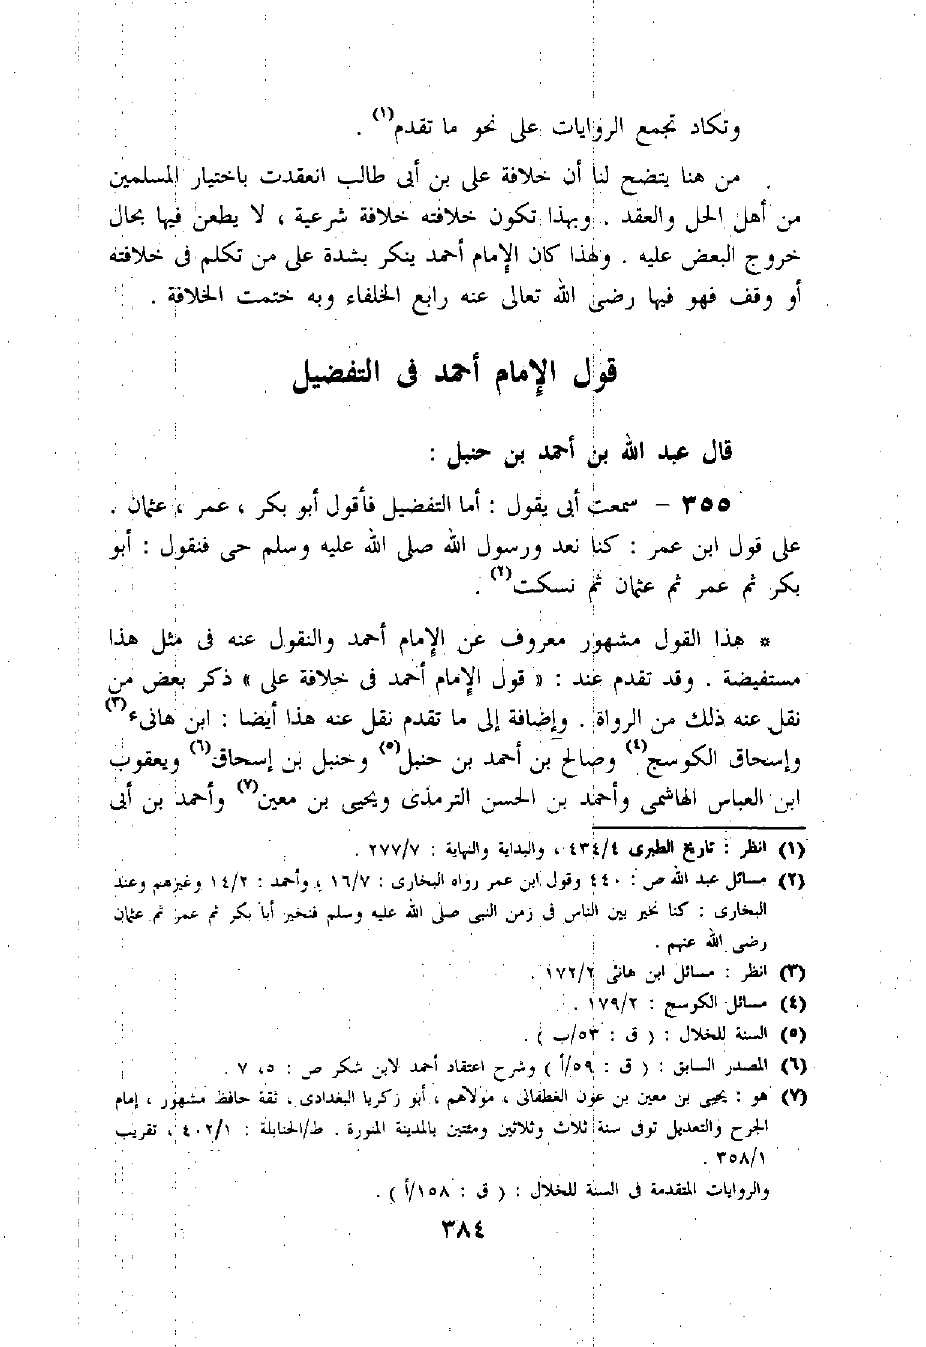 وتكاد تجمع الروايات على نحو ما تقدم(١) .
من هنا يتضح لنا أن خلافة على بن أبى طالب انعقدت باختيار المسلمين
من أهل الحل والعقد . وبهذا تكون خلافته خلافة شرعية ، لا يطعن فيها بحال
خروج البعض عليه . ولهذا كان الإمام أحمد ينكر بشدة على من تكلم فى خلافته
أو وقف فهو فيها رضى الله تعالى عنه رابع الخلفاء وبه ختمت الخلافة .
قول الإمام أحمد فى التفضيل
قال عبد الله بن أحمد بن حنبل :
٣٥٥ - سمعت أبى يقول : أما التفضيل فأقول أبو بكر ، عمر ، عثمان .
على قول ابن عمر : كنا نعد ورسول الله صلى الله عليه وسلم حى فنقول : أبو
بكر ثم عمر ثم عثمان ثم نسكت(٢) .
* هذا القول مشهور معروف عن الإمام أحمد والنقول عنه فى مثل هذا
مستفيضة . وقد تقدم عند : « قول الإمام أحمد فى خلافة على » ذكر بعض من
نقل عنه ذلك من الرواة . وإضافة إلى ما تقدم نقل عنه هذا أيضا : ابن هانىء(٣)
وإسحاق الكوسج(٤) وصالح بن أحمد بن حنبل(٥) وحنبل بن إسحاق(٦) ويعقوب
ابن العباس الهاشمى وأحمد بن الحسن الترمذى ويحيى بن معين(٧) وأحمد بن أبى
(١) انظر : تاريخ الطبرى ٤٣٤/٤ ، والبداية والنهاية : ٢٧٧/٧ .
(٢) مسائل عبد الله ص : ٤٤٠ وقول ابن عمر رواه البخارى : ١٦/٧ ، وأحمد : ١٤/٢ وغيرهم وعند
البخارى : كنا نخير بين الناس فى زمن النبى صلى الله عليه وسلم فنخير أبا بكر ثم عمر ثم عثمان
رضى الله عنهم .
(٣) انظر : مسائل ابن هانئى ١٧٢/٢ .
(٤) مسائل الكوسج : ١٧٩/٢ .
(٥) السنة للخلال : ( ق : ٥٣/ب ) .
(٦) المصدر السابق : ( ق : ٥٩/أ ) وشرح اعتقاد أحمد لابن شكر ص : ٥، ٧ .
(٧) هو : يحيى بن معين بن عون الغطفانى ، مولاهم ، أبو زكريا البغدادى ، ثقة حافظ مشهور ، إمام
الجرح والتعديل توفى سنة ثلاث وثلاثين ومئتين بالمدينة المنورة . ط/الحنابلة : ٤٠٢/١ ، تقريب
٣٥٨/١ .
والروايات المتقدمة فى السنة للخلال : ( ق : ١٥٨/أ ) .
٣٨٤